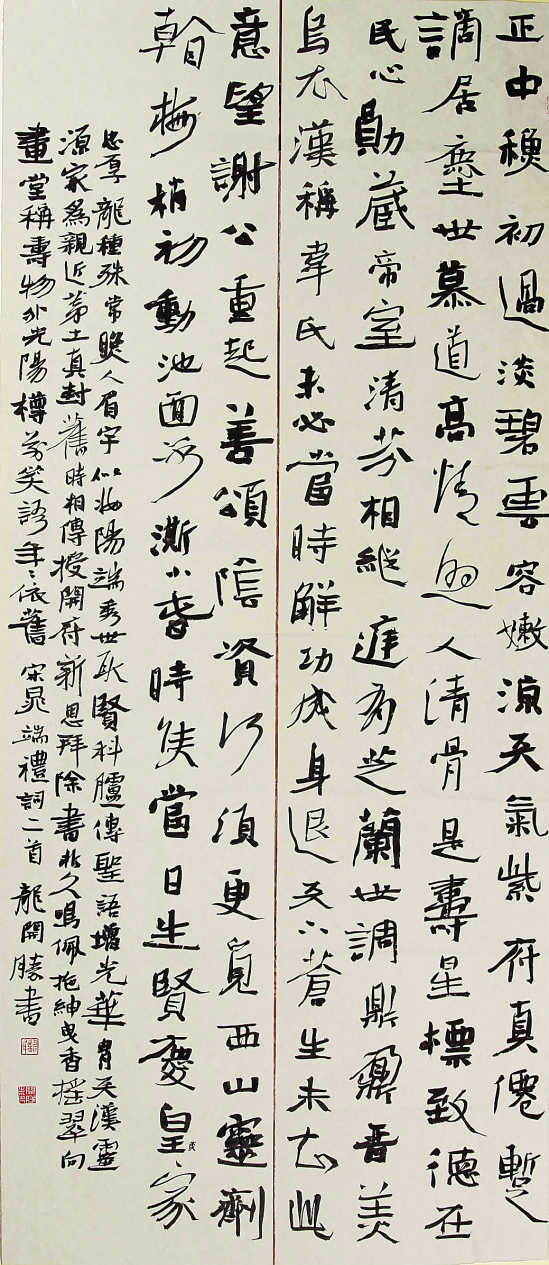 正中穐初過淡碧雲容嫩涼天氣紫府真僊暫
謫居塵世慕道高情逸人清骨是壽星標致德在
民心勛藏帝室清芬相繼庭有芝蘭世調鼎鼐晉羨
烏衣漢稱韋氏未必當時解功成身退天下蒼生未忘此
意望謝公重起善頌陰資何須更覓西山靈劑
梅梢初動池面波澌小春時候當日生賢慶皇家
忠孝龍種殊常人眉宇似汝陽端秀世耿賢科臚傳聖語增光華胄天漢靈
源家為親近茅土真封舊時相傳授開府新恩拜除書非久鳴佩拖紳曳香搖翠向
畫堂稱壽物外光陽樽前笑語年々依舊 宋晁端禮詞二首 龍開勝書